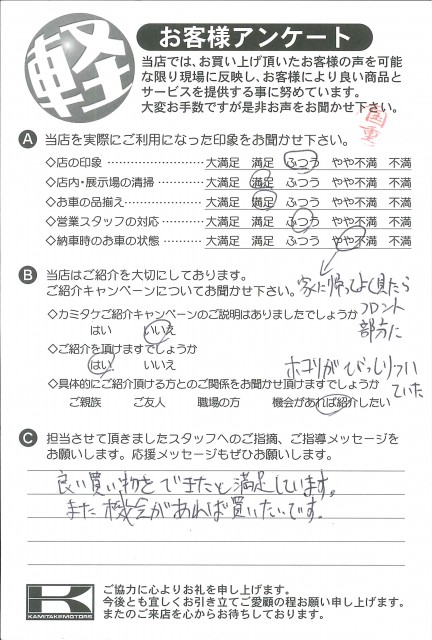 軽
お客様アンケート
当店では、お買い上げ頂いたお客様の声を可能
な限り現場に反映し、お客様により良い商品と
サービスを提供する事に努めています。
大変お手数ですが是非お声をお聞かせ下さい。
A 当店を実際にご利用になった印象をお聞かせ下さい。
◇店の印象 ………………… 大満足 満足 ふつう やや不満 不満
◇店内・展示場の清掃 ………… 大満足 満足 ふつう やや不満 不満
◇お車の品揃え ……………… 大満足 満足 ふつう やや不満 不満
◇営業スタッフの対応 ………… 大満足 満足 ふつう やや不満 不満
◇納車時のお車の状態 ………… 大満足 満足 ふつう やや不満 不満
家に帰ってよく見たら
フロント
部分に
ホコリがびっしりつい
ていた
B 当店はご紹介を大切にしております。
ご紹介キャンペーンについてお聞かせ下さい。
◇カミタケご紹介キャンペーンのご説明はありましたでしょうか
はい いいえ
◇ご紹介を頂けますでしょうか
はい いいえ
◇具体的にご紹介頂ける方とのご関係をお聞かせ頂けますでしょうか
ご親族 ご友人 職場の方 機会があれば紹介したい
C 担当させて頂きましたスタッフへのご指摘、ご指導メッセージを
お願いします。応援メッセージもぜひお願いします。
良い買い物をできたと満足しています。
また機会があれば買いたいです。
K
KAMITAKEMOTORS
ご協力に心よりお礼を申し上げます。
今後とも宜しくお引き立てご愛顧の程お願い申し上げます。
またのご来店を心からお待ちしております。